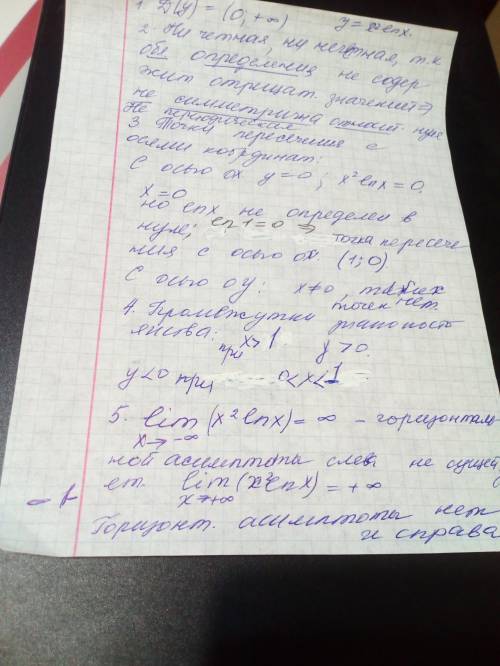 1. D(y) = (0, +∞) y = x²lnx.
2. Ни четная, ни нечётная, т.к.
обл определения не содер
жит отрицат. значений =>
не симметрична относит. нуля
Не периодическая
3. Точки пересечения с
осями координат:
С осью ох y=0; x²lnx=0.
x=0
но lnx не определен в
нуле; ln1=0 => Точка пересече
ния с осью ох (1;0).
С осью оу: x≠0, таких
точек нет.
4. Промежутки знакопост
янства:
при x>1 y>0.
y<0 при 0<x<1.
5. lim (x²lnx) = ∞ – горизонталь
x→-∞
ной асимптоты слева не сущей
ет. lim (x²lnx) = +∞
x→+∞
Горизонт. асимптоты нет
и справа